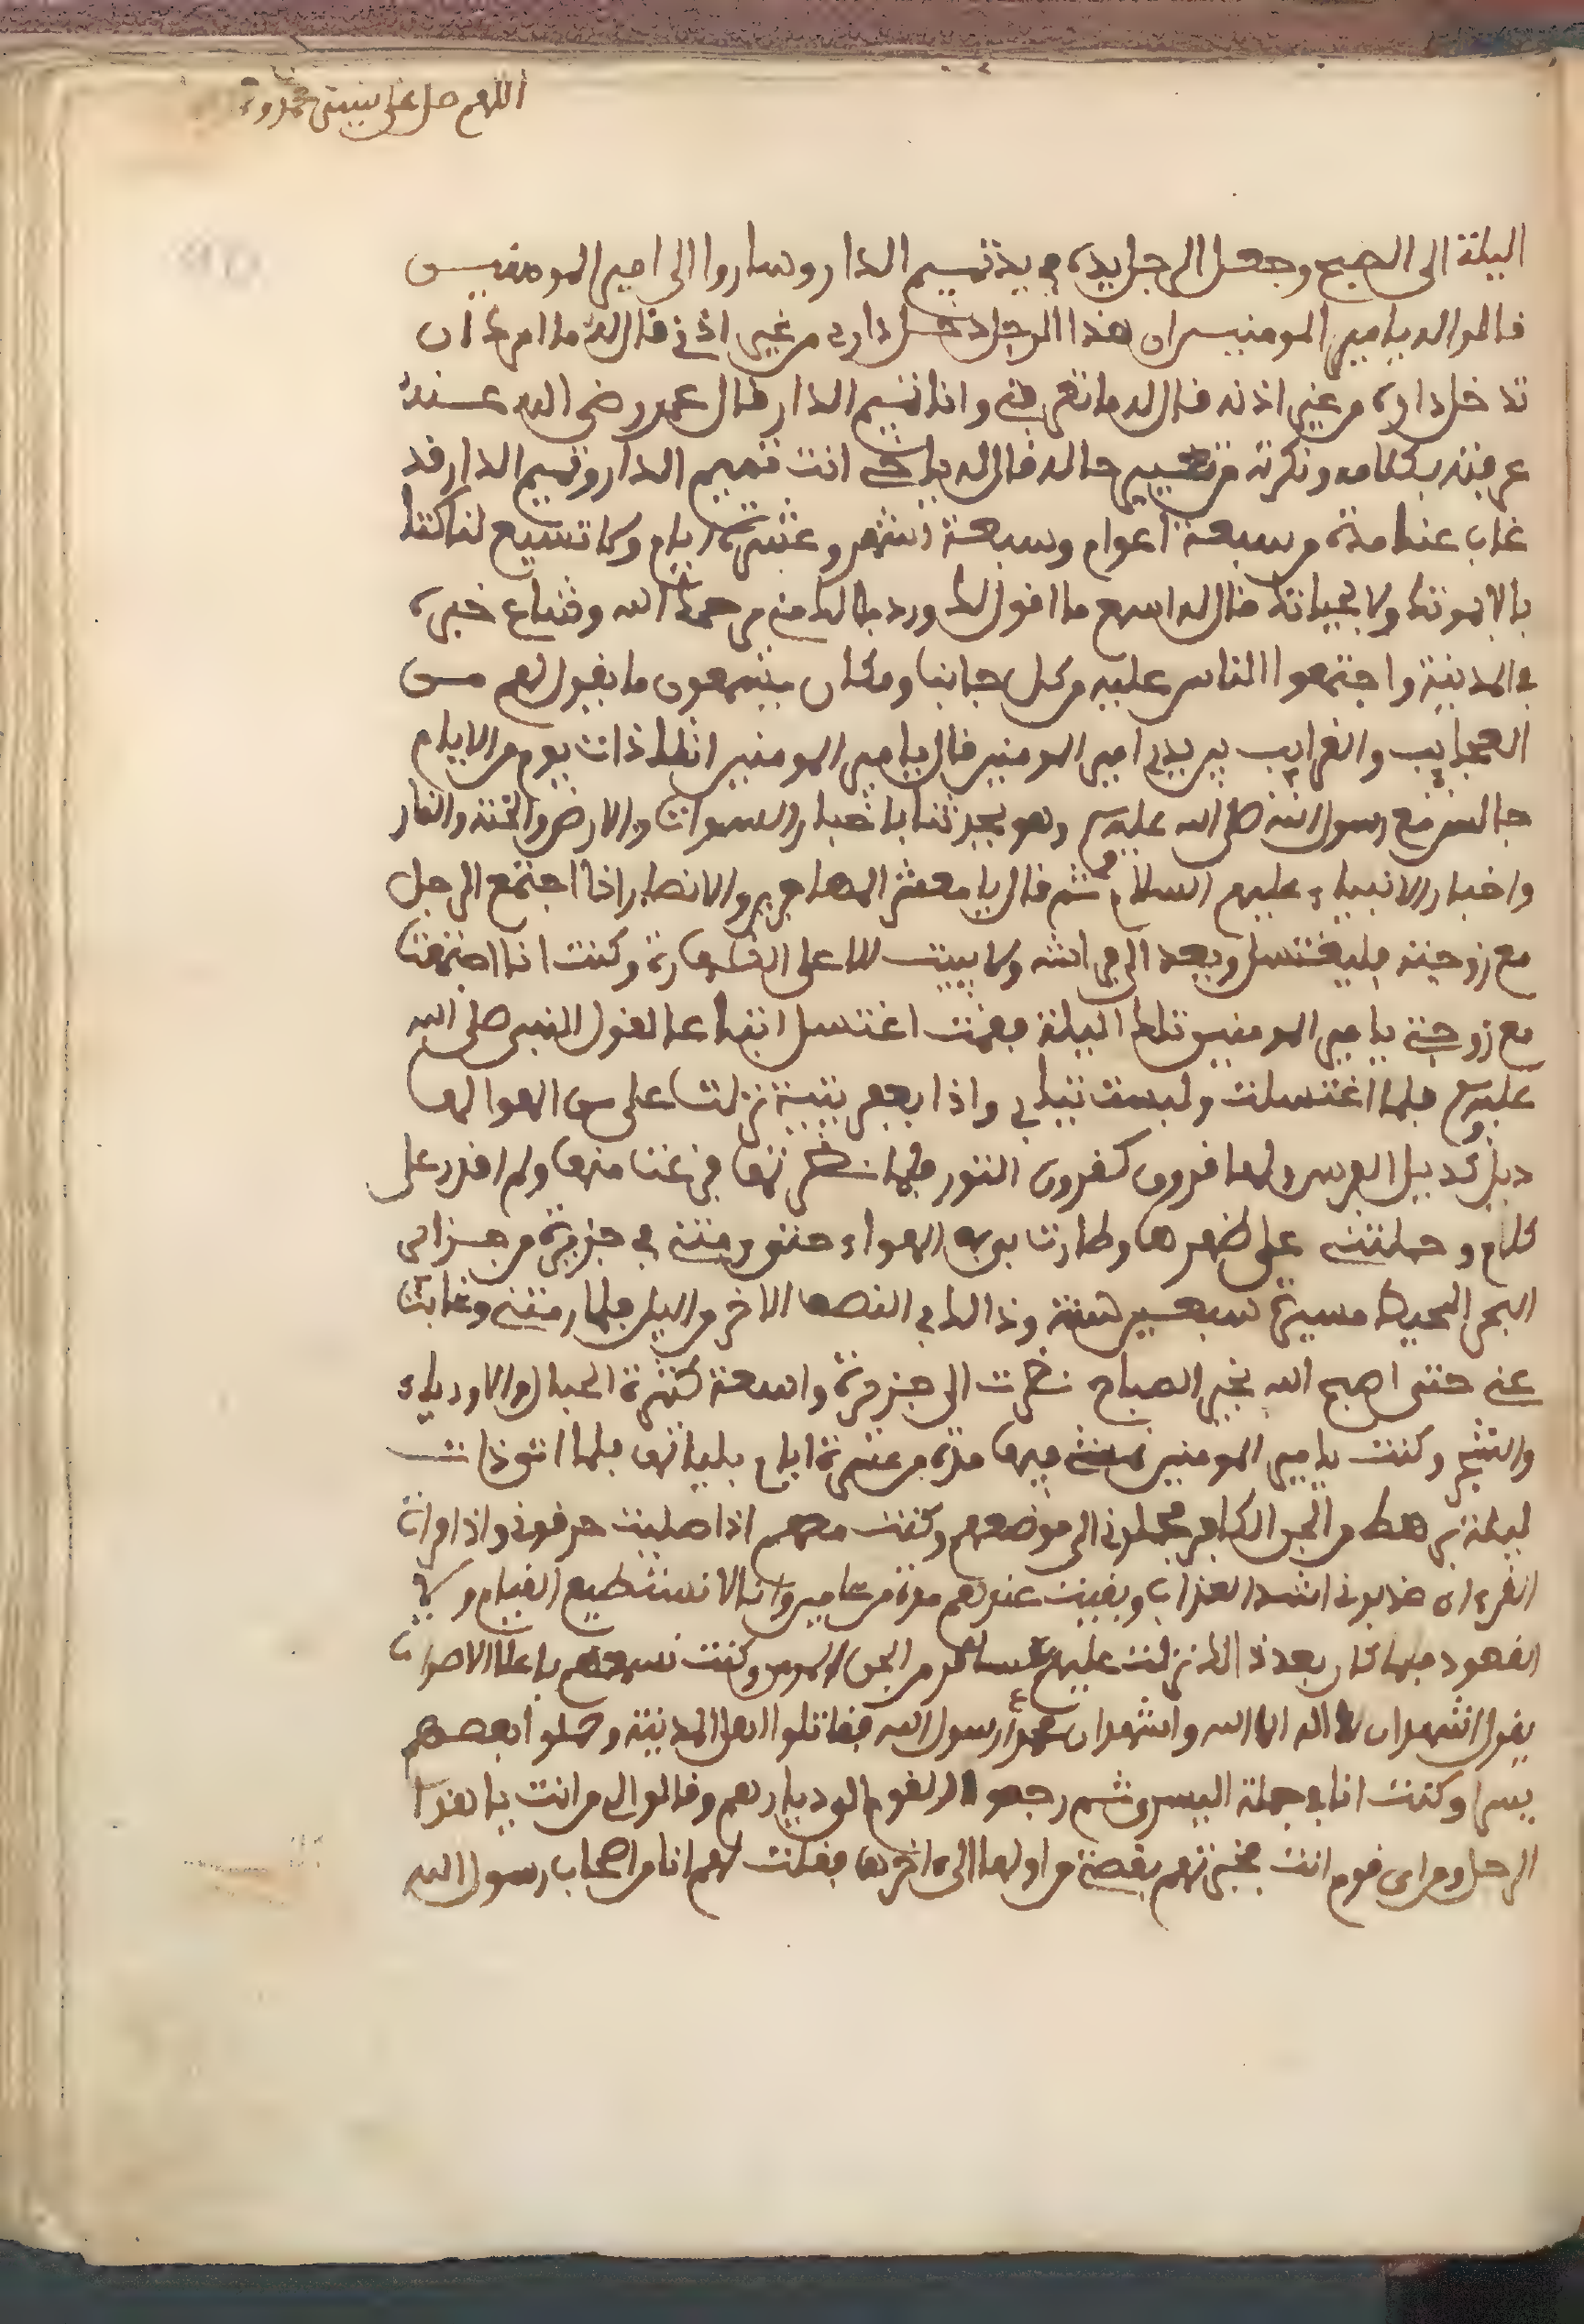 اللهم صل على نبيك محمد وءا
اليلة الى الصبح وجعل الرجل يده في يد تميم الدار وساروا الى امير المومنيين
فالوا له يامير المومنيين ان هذا الرجل دخل داري من غير اذني فال له ما امرك ان
تدخل داره من غير اذنه فال له ما تعرفني وانا تميم الدار فال عمر رضي الله عنه
عرفته بكلامه ونكرته من تغيير حاله فال له ياخي انت تميم الدار وتميم الدار فد
غاب عنا مدة من سبعة اعوام وسبعة اشهر وعشرة ايام ولا تسيع لنا كتا
بالا بموتك ولا بحياتك فال له اسمع ما افول لك ورد بالك مني يرحمك الله وشاع خبره
في المدينة واجتمعوا الناس عليه من كل جانبا ومكان يسمعون ما يفول لهم مــن
العجايب والغرايب بين يدي امير المومنين فال يامير المومنين انا كنت ذات يوم من الايام
جالس مع رسول الله صلى الله عليه وسلم وهو يحدثنا باخبار السموات والارض والجنة والنار
واخبار الانبياء عليهم السلام ثم فال يا معشر المهاجرين والانصار اذا اجتمع الرجل
مع زوجته فليغتسل ويعد الى فراشه ولا يبيت الا على الطهارة وكنت انا اجتمعت
مع زوجتي يامير المومنين تلك اليلة ففمت اغتسل اتباعا لفول النبي صلى الله
عليه وسلم فلما اغتسلت ولبست ثيابي واذا بعفريتة نزلت على من الهوا لها
ذيل كذيل الفرس ولها فرون كفرون الثور فلما نظرتها فزعت منها ولم افدر على
كلام وحملتني على ظهرها وطارت بي في الهواء حتى رمتني في جزيرة من جزاير
البحر المحيط مسيرة سبعين سنة وذالك في النصف الاخر من اليل فلما رمتني وغابت
عني حتى اصبح الله بخير الصباح نظرت الى جزيرة واسعة كثيرة الجبال والاودياء
والشجر وكنت يامير المومنين فيها مدة من عشرة ايام بلياتها فلما اتى ذات
ليلة رهط من الجن الكافر فحملوني الى موضعهم وكنت معهم اذا صليت حرفوني واذا فرات
الفرءان عذبوني اشد العذاب وبفيت عندهم مدة من عامين وانا لا نستطيع الفيام ولا
الفعود فلما كان بعد ذالك نزلت عليهم عساكر من الجن المومن وكنت نسمعهم باعلا الاصوات
يفول اشهد ان لا اله الا الله واشهد ان محمدا رسول الله ففاتلوا اهل المدينة وحملوا بعضهم
يسرا وكنت انا في جملة اليسر ثم رجعوا الفوم الى ديارهم وفالوا لي من انت يا هذا
الرجل ومن اي فوم انت فخبرتهم بفصتي من اولها الى ءاخرها ففلت لهم انا من اصحاب رسول الله